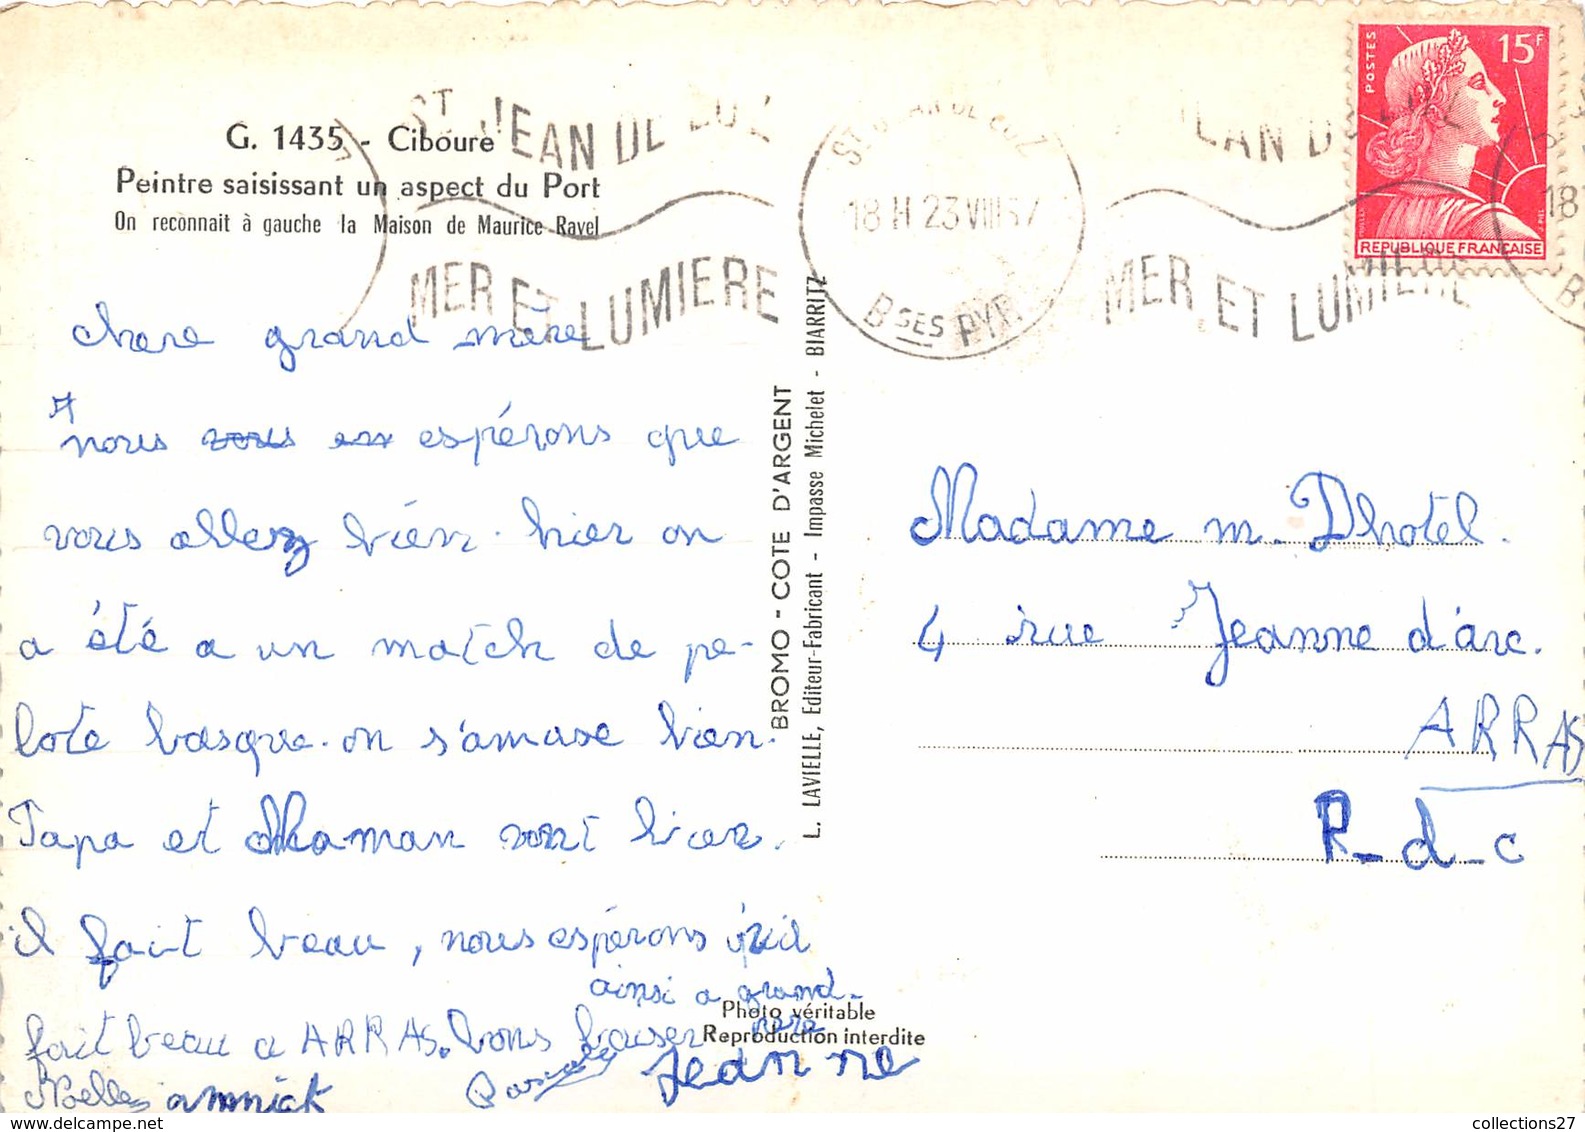 G. 1435 - Ciboure
Peintre saisissant un aspect du Port
On reconnait à gauche la Maison de Maurice Ravel
ST JEAN DE LUZ
MER ET LUMIERE
ST JEAN DE LUZ
18 H 23 VIII 57
BSES PYR
JEAN DE LUZ
MER ET LUMIERE
18
B
POSTES
15F
REPUBLIQUE FRANÇAISE
chere grand mère
nous vous en espérons que
vous allez bien. hier on
a été a un match de pe-
lote basque. on s'amuse bien.
Papa et Maman vont bien.
il fait beau, nous espérons qu'il
fait beau a ARRAS. bons baiser
ainsi a grand-
père
Noelle annick Pascale Jeanne
BROMO - COTE D'ARGENT
L. LAVIELLE, Editeur-Fabricant - Impasse Michelet - BIARRITZ
Photo véritable
Reproduction interdite
Madame m. Dhotel.
4 rue Jeanne d'arc.
ARRAS
P-d-c
collections27